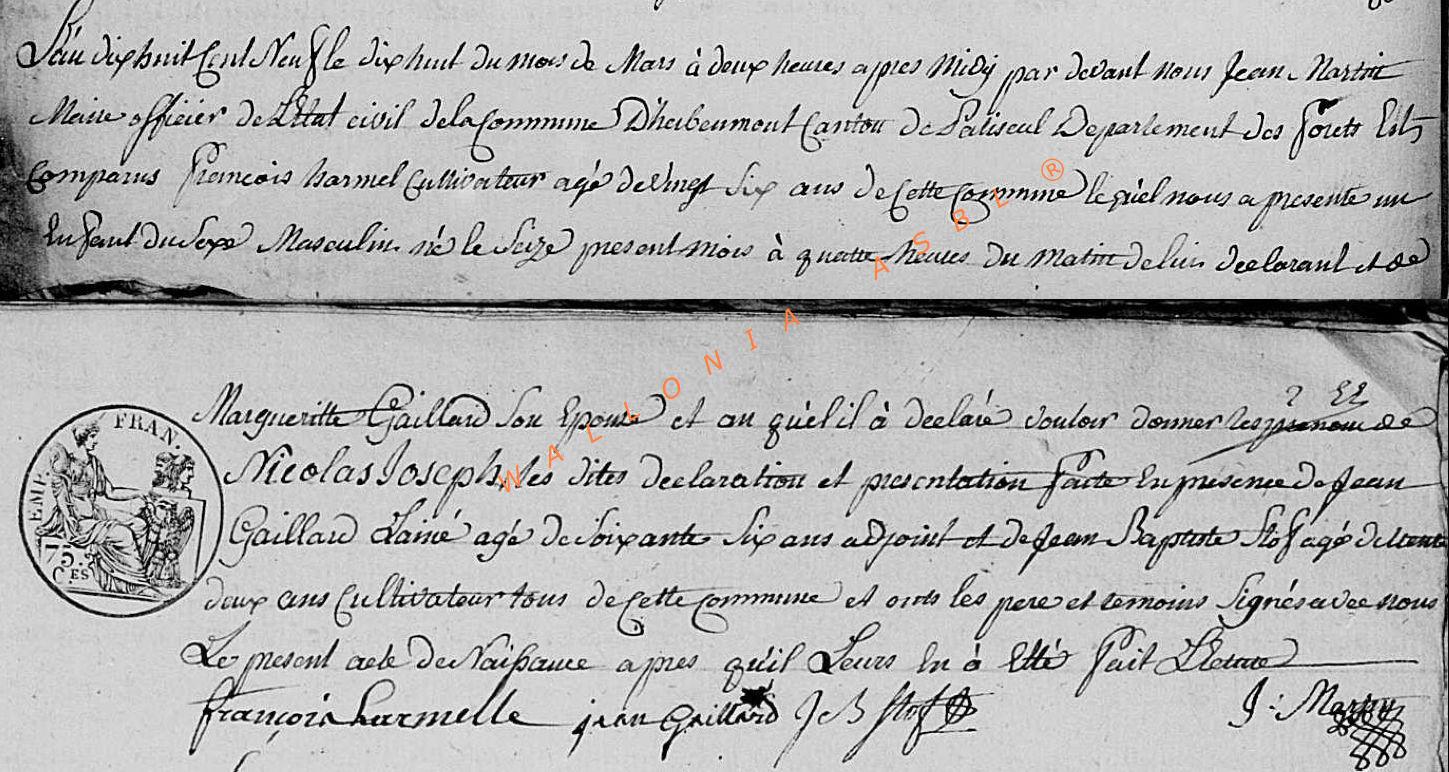 L'an dix huit Cent Neuf le dix huit du mois de Mars à deux heures apres Midy par devant nous Jean Martin
Maire officier de L'Etat civil de la Commune D'herbeumont Canton de Paliseul Departement des Forets Est
Comparus François harmel Cultivateur agé de vingt six ans de Cette Commune le quel nous a presente un
Enfant du Sexe Masculin né le Seize present mois à quatte heures du matin de lui declarant et de
WALLONIA ASBL ®
Margueritte Gaillard Son Epouse et au quel il à declaré vouloir donner les prenom de
Nicolas Joseph, les dites declaration et presentation faite En presence de Jean
Gaillard L'ainé agé de Soixante Six ans adjoint et de Jean Baptiste Stof agé de trente
deux ans Cultivateur tous de Cette Commune et onts les pere et temoins Signés avec nous
Le present acte de Naissance apres qu'il Leurs En à Etté Fait Lecture
françois harmelle jean Gaillard J B Stof J: Martin
EMP. FRAN.
75.
CES